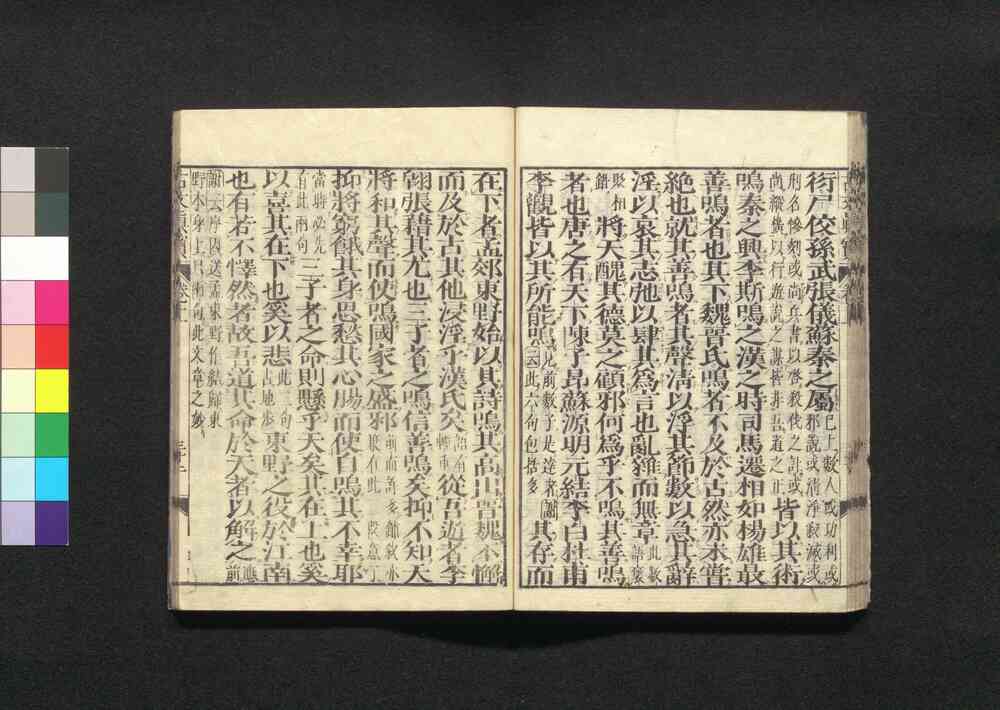 衍尸佼孫武張儀蘇秦之屬已上數人或功利或邪說或清淨寂滅或
刑名慘刻或尚兵書以啓殺伐之計或尚縱橫以行遊說之謀皆非吾道之正皆以其術
鳴秦之興李斯鳴之漢之時司馬遷相如楊雄最
善鳴者也其下魏晉氏鳴者不及於古然亦未嘗
絶也就其善鳴者其聲清以浮其節數以急其辭
淫以哀其志弛以肆其爲言也亂雜而無章此數語褒
貶相錯將天醜其德莫之顧邪何爲乎不鳴其善鳴
者也唐之有天下陳子昂蘇源明元結李白杜甫
李觀皆以其所能鳴此六句包括多其存而
在下者孟郊東野始以其詩鳴其高出晉魏不懈
而及於古其他浸淫乎漢氏矣從吾遊者李
翱張籍其尤也三子者之鳴信善鳴矣抑不知天
將和其聲而使鳴國家之盛邪
抑將窮餓其身思愁其心腸而使自鳴其不幸耶
當時必先有此兩句三子者之命則懸乎天矣其在上也奚
以喜其在下也奚以悲此二句占地步東野之役於江南
也有若不懌然者故吾道其命於天者以解之